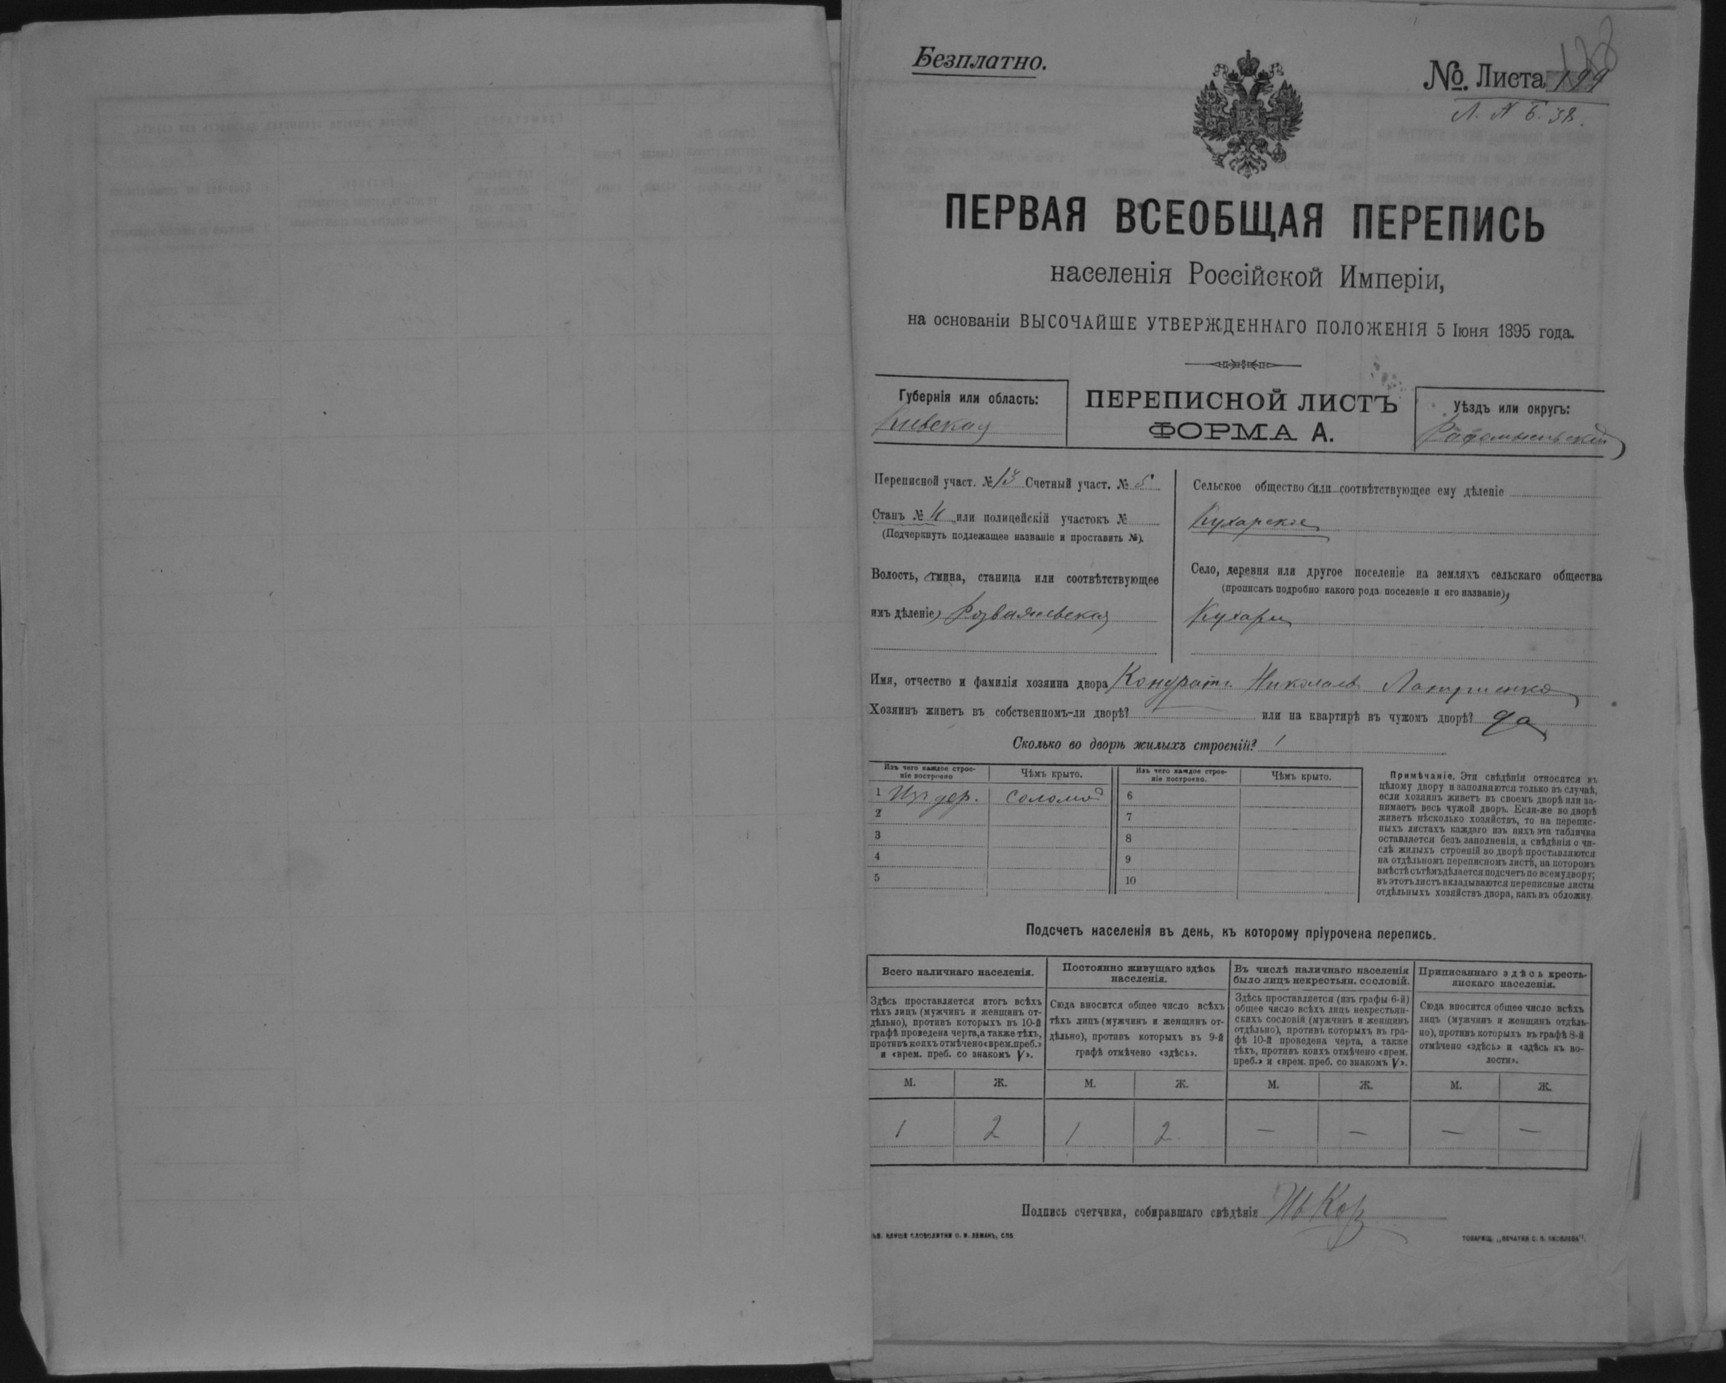 Безплатно.
№. Листа 199
Л. А Б. 38.
ПЕРВАЯ ВСЕОБЩАЯ ПЕРЕПИСЬ
населенія Россійской Имперіи,
на основаніи ВЫСОЧАЙШЕ УТВЕРЖДЕННАГО ПОЛОЖЕНІЯ 5 Іюня 1895 года.
Губернія или область:
Кіевская
ПЕРЕПИСНОЙ ЛИСТЪ
ФОРМА А.
Уѣздъ или округъ:
Радомысльскій
Переписной участ. № 13 Счетный участ. № 5
Станъ № 4 или полицейскій участокъ №
(Подчеркнуть подлежащее названіе и проставить №).
Волость, гмина, станица или соотвѣтствующее
имъ дѣленіе)
Сельское общество или соотвѣтствующее ему дѣленіе
Кухарское
Село, деревня или другое поселеніе на земляхъ сельскаго общества
(прописать подробно какого рода поселеніе и его названіе)
Кухари
Имя, отчество и фамилія хозяина двора Кондратъ Николаевъ
Хозяинъ живетъ въ собственномъ-ли дворѣ? или на квартирѣ въ чужомъ дворѣ? да
Сколько во дворѣ жилыхъ строеній? 1
Изъ чего каждое строе-
ніе построено
Чѣмъ крыто.
Изъ чего каждое строе-
ніе построено.
Чѣмъ крыто.
1 Изъ дер. соломой
2
3
4
5
6
7
8
9
10
Примѣчаніе. Эти свѣдѣнія относятся къ
цѣлому двору и заполняются только въ случаѣ,
если хозяинъ живетъ въ своемъ дворѣ или за-
нимаетъ весь чужой дворъ. Если-же во дворѣ
живетъ нѣсколько хозяйствъ, то на перепис-
ныхъ листахъ каждаго изъ нихъ эта табличка
оставляется безъ заполненія, а свѣдѣнія о чи-
слѣ жилыхъ строеній во дворѣ проставляются
на отдѣльномъ переписномъ листѣ, на которомъ
вмѣстѣ съ тѣмъ дѣлается подсчетъ по всему двору;
въ этотъ листъ вкладываются переписные листы
отдѣльныхъ хозяйствъ двора, какъ въ обложку.
Подсчетъ населенія въ день, къ которому пріурочена перепись.
Всего наличнаго населенія.
Здѣсь проставляется итогъ всѣхъ
тѣхъ лицъ (мужчинъ и женщинъ от-
дѣльно), противъ которыхъ въ 10-й
графѣ проведена черта, а также тѣхъ,
противъ коихъ отмѣчено «врем. преб.»
и «врем. преб. со знакомъ V».
Постоянно живущаго здѣсь
населенія.
Сюда вносится общее число всѣхъ
тѣхъ лицъ (мужчинъ и женщинъ от-
дѣльно), противъ которыхъ въ 9-й
графѣ отмѣчено «здѣсь».
Въ числѣ наличнаго населенія
было лицъ некрестьян. сословій.
Здѣсь проставляется (изъ графы 6-й)
общее число всѣхъ лицъ некрестьян-
скихъ сословій (мужчинъ и женщинъ
отдѣльно), противъ которыхъ въ гра-
фѣ 10-й проведена черта, а также
тѣхъ, противъ коихъ отмѣчено «врем.
преб.» и «врем. преб. со знакомъ V».
Приписаннаго здѣсь кресть-
янскаго населенія.
Сюда вносится общее число всѣхъ
лицъ (мужчинъ и женщинъ отдѣль-
но), противъ которыхъ въ графѣ 8-й
отмѣчено «здѣсь» и «здѣсь въ во-
лости».
М. Ж. М. Ж. М. Ж. М. Ж.
1 2 1 2 — — — —
Подпись счетчика, собиравшаго свѣдѣнія
ТОВАРИЩ. „ПЕЧАТНЯ С. П. ЯКОВЛЕВА".